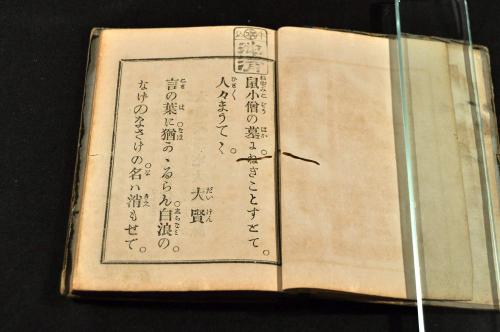 鼠小僧の墓にねぎことすとて。
人々まうてく
大賢
言の葉に猶かゝるらん白浪の。
なけのなさけの名ハ消もせで。